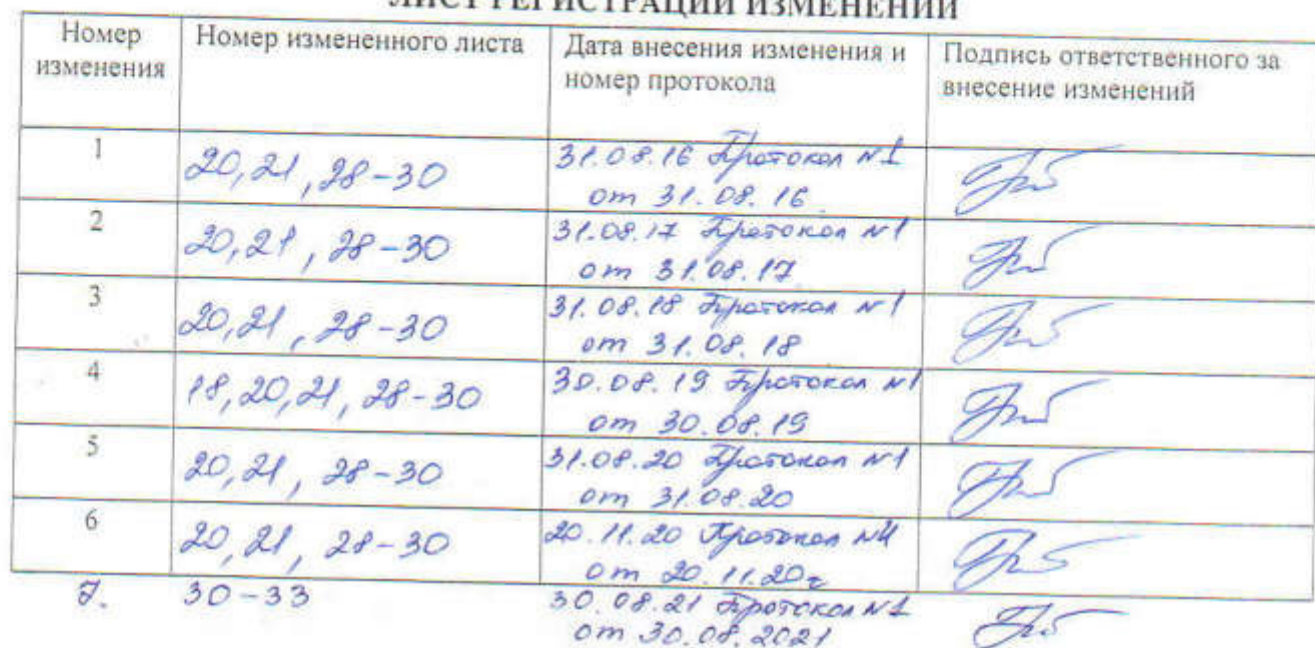 ЛИСТ РЕГИСТРАЦИИ ИЗМЕНЕНИЙ
Номер изменения
Номер измененного листа
Дата внесения изменения и номер протокола
Подпись ответственного за внесение изменений
1
20,21,28-30
31.08.16 Протокол №1
от 31.08.16
2
20,21,28-30
31.08.17 Протокол №1
от 31.08.17
3
20,21,28-30
31.08.18 Протокол №1
от 31.08.18
4
18,20,21,28-30
30.08.19 Протокол №1
от 30.08.19
5
20,21,28-30
31.08.20 Протокол №1
от 31.08.20
6
20,21,28-30
20.11.20 Протокол
от 20.11.20г
7.
30-33
30.08.21 Протокол №1
от 30.08.2021